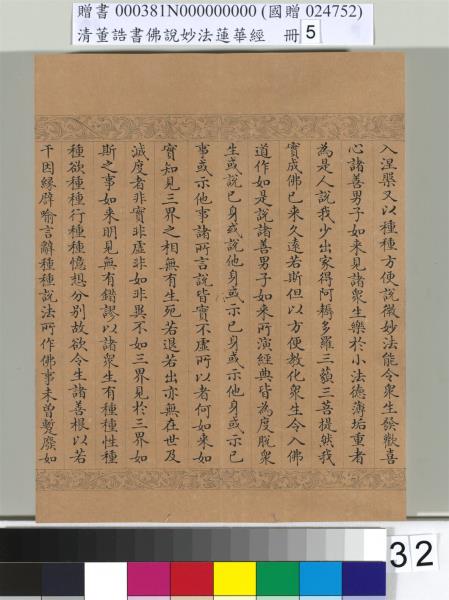 贈書 000381N000000000 (國贈 024752)
清董誥書佛說妙法蓮華經 冊 5
入涅槃又以種種方便說微妙法能令眾生發歡喜
心諸善男子如來見諸眾生樂於小法德薄垢重者
為是人說我少出家得阿耨多羅三藐三菩提然我
實成佛已來久遠若斯但以方便教化眾生令入佛
道作如是說諸善男子如來所演經典皆為度脫眾
生或說己身或說他身或示己身或示他身或示己
事或示他事諸所言說皆實不虛所以者何如來如
實知見三界之相無有生死若退若出亦無在世及
滅度者非實非虛非如非異不如三界見於三界如
斯之事如來明見無有錯謬以諸眾生有種種性種
種欲種種行種種憶想分別故欲令生諸善根以若
干因緣譬喻言辭種種說法所作佛事未曾暫廢如
32